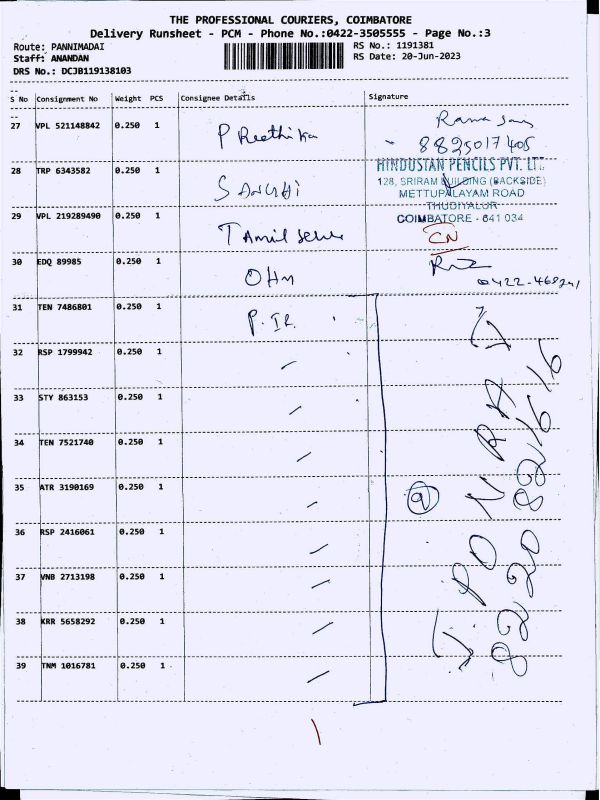 THE PROFESSIONAL COURIERS, COIMBATORE
Delivery Runsheet - PCM - Phone No.:0422-3505555 - Page No.:3
Route: PANNIMADAI
RS No.: 1191381
Staff: ANANDAN
RS Date: 20-Jun-2023
DRS No.: DCJB119138103
S No Consignment No Weight PCS Consignee Details Signature
27 VPL 521148842 0.250 1 PReethika
8825017405
28 TRP 6343582 0.250 1
HINDUSTAN PENCILS PVT. LT
128, SRIRAM BUILDING (BACKSIDE)
METTUPALAYAM ROAD
THUDIYALUR
COIMBATORE - 641 034
29 VPL 219289490 0.250 1 Tamil
CN
30 EDQ 89985 0.250 1 OHM
31 TEN 7486801 0.250 1 P.IR
32 RSP 1799942 0.250 1
33 STY 863153 0.250 1
34 TEN 7521740 0.250 1
35 ATR 3190169 0.250 1
9
36 RSP 2416061 0.250 1
37 VNB 2713198 0.250 1
38 KRR 5658292 0.250 1
39 TNM 1016781 0.250 1